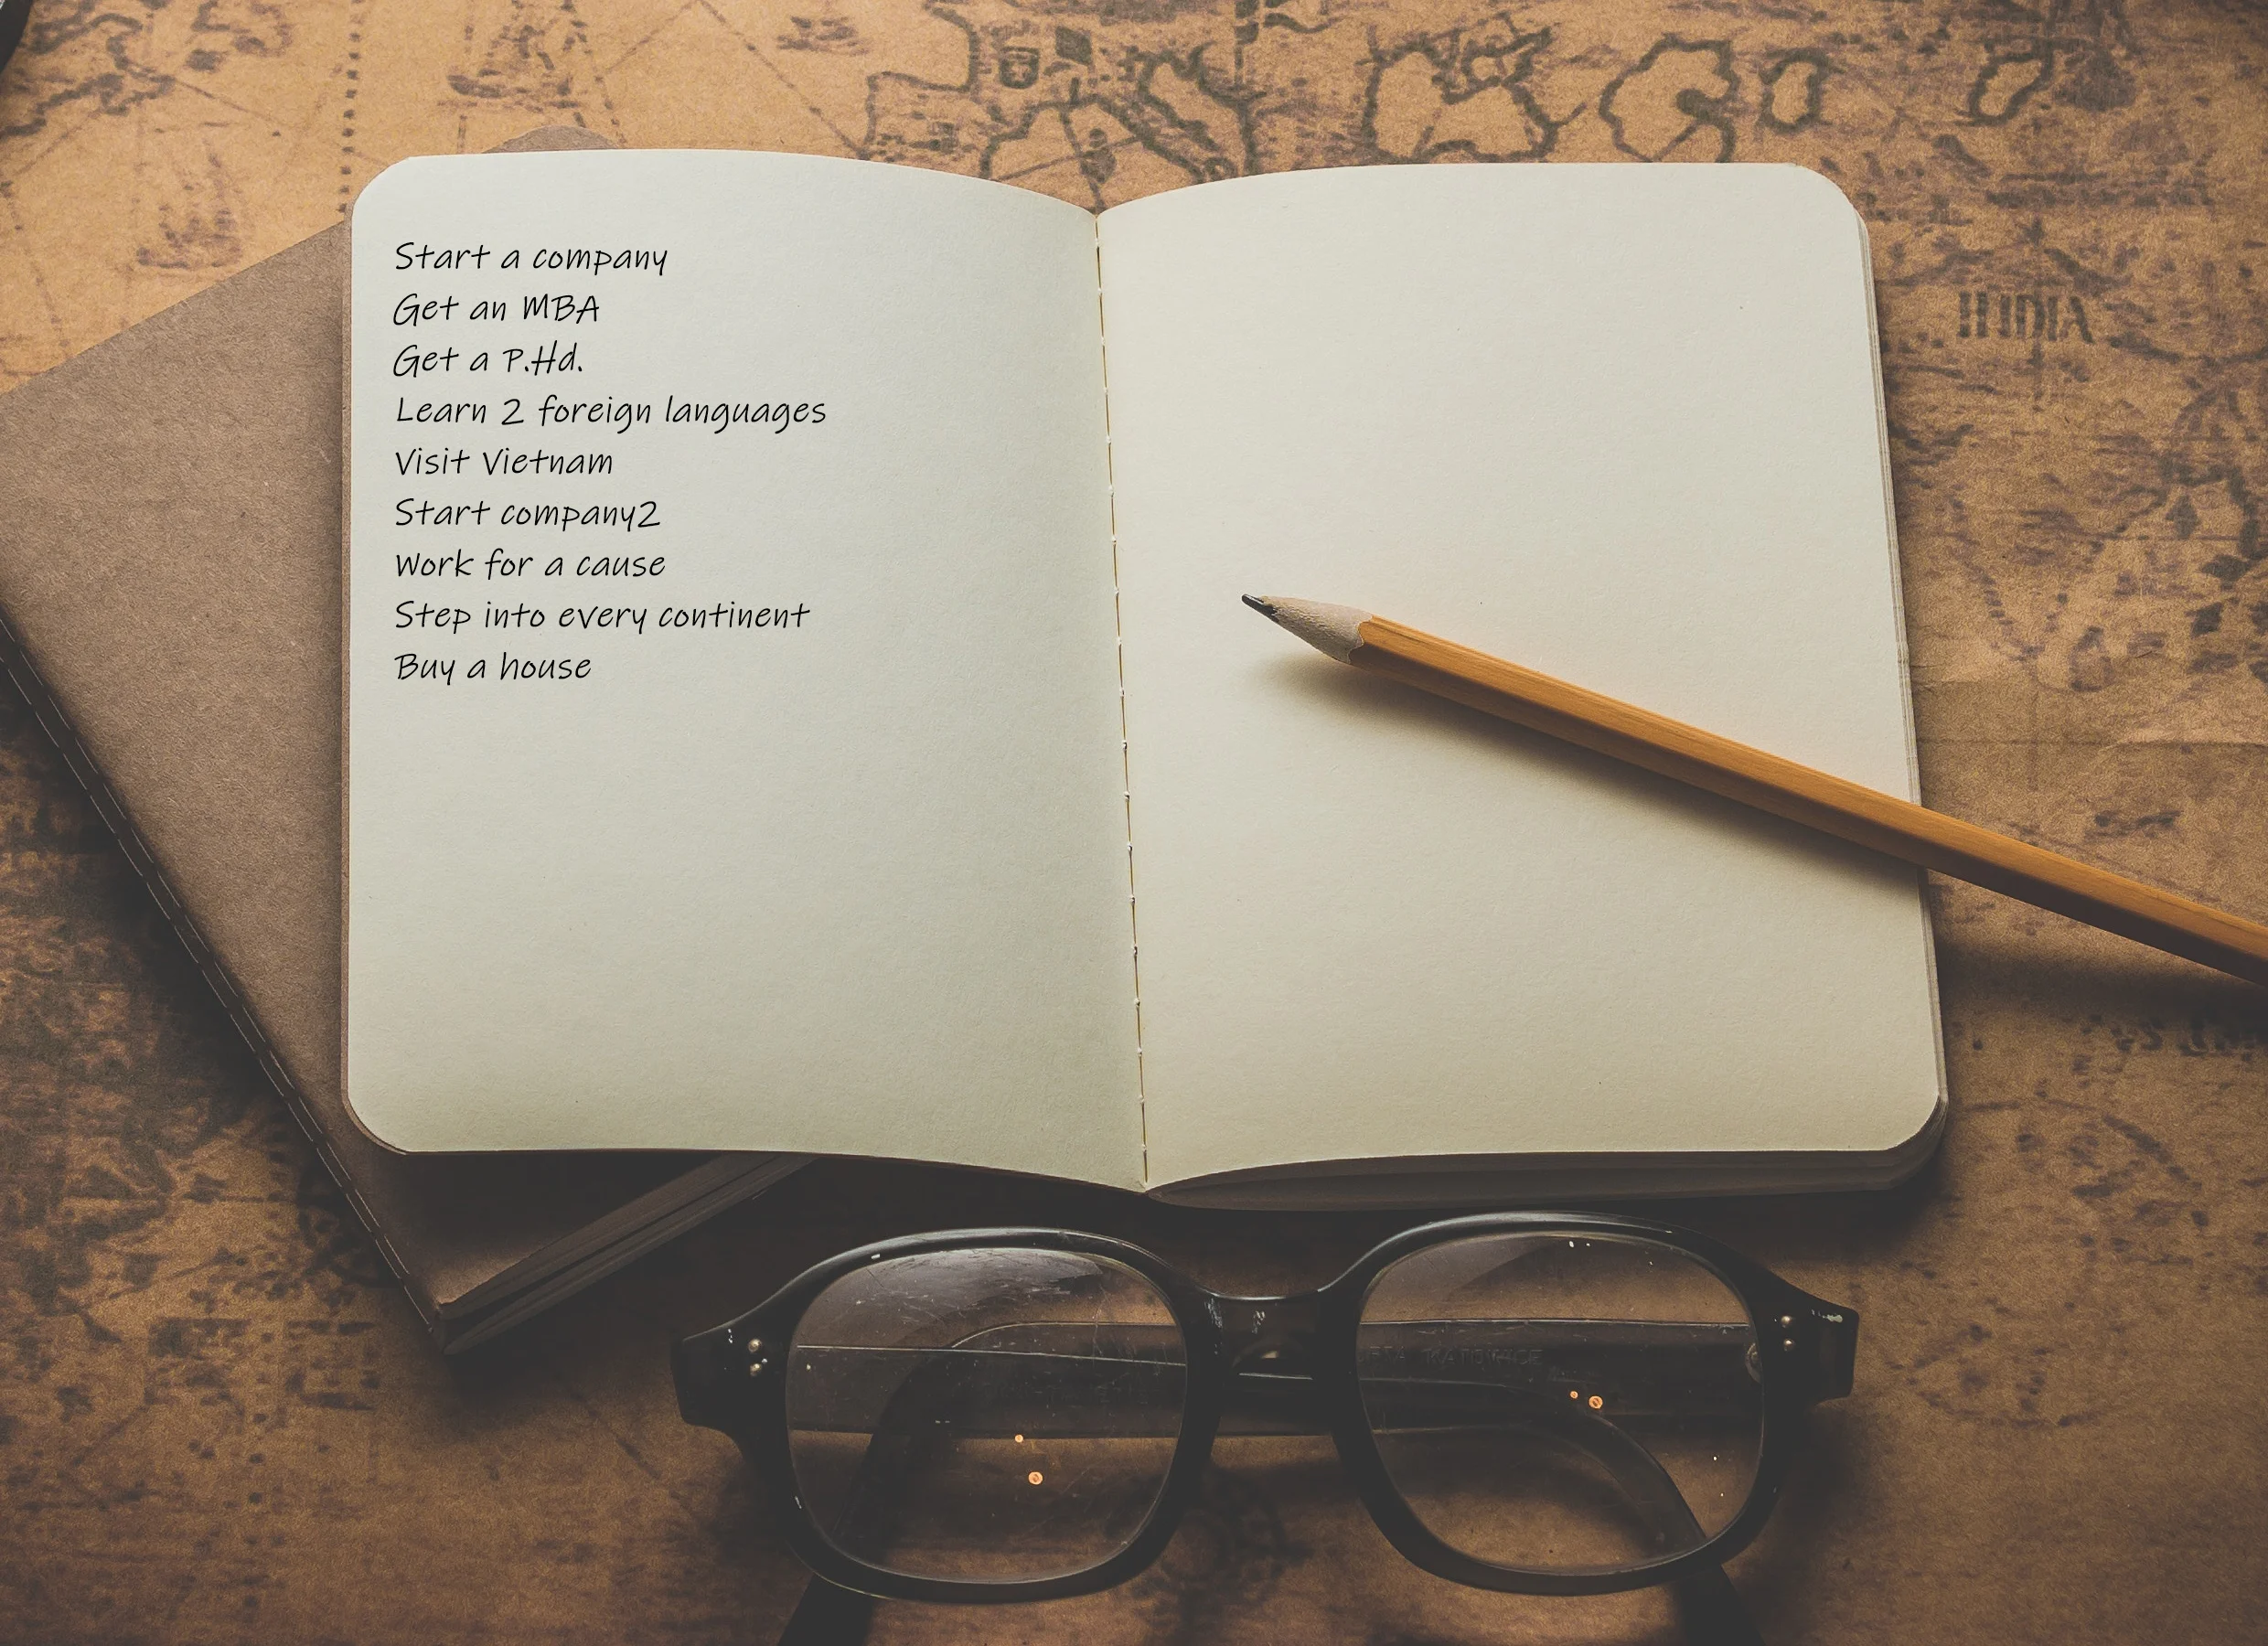 Start a company
Get an MBA
Get a P.Hd.
Learn 2 foreign languages
Visit Vietnam
Start company2
Work for a cause
Step into every continent
Buy a house